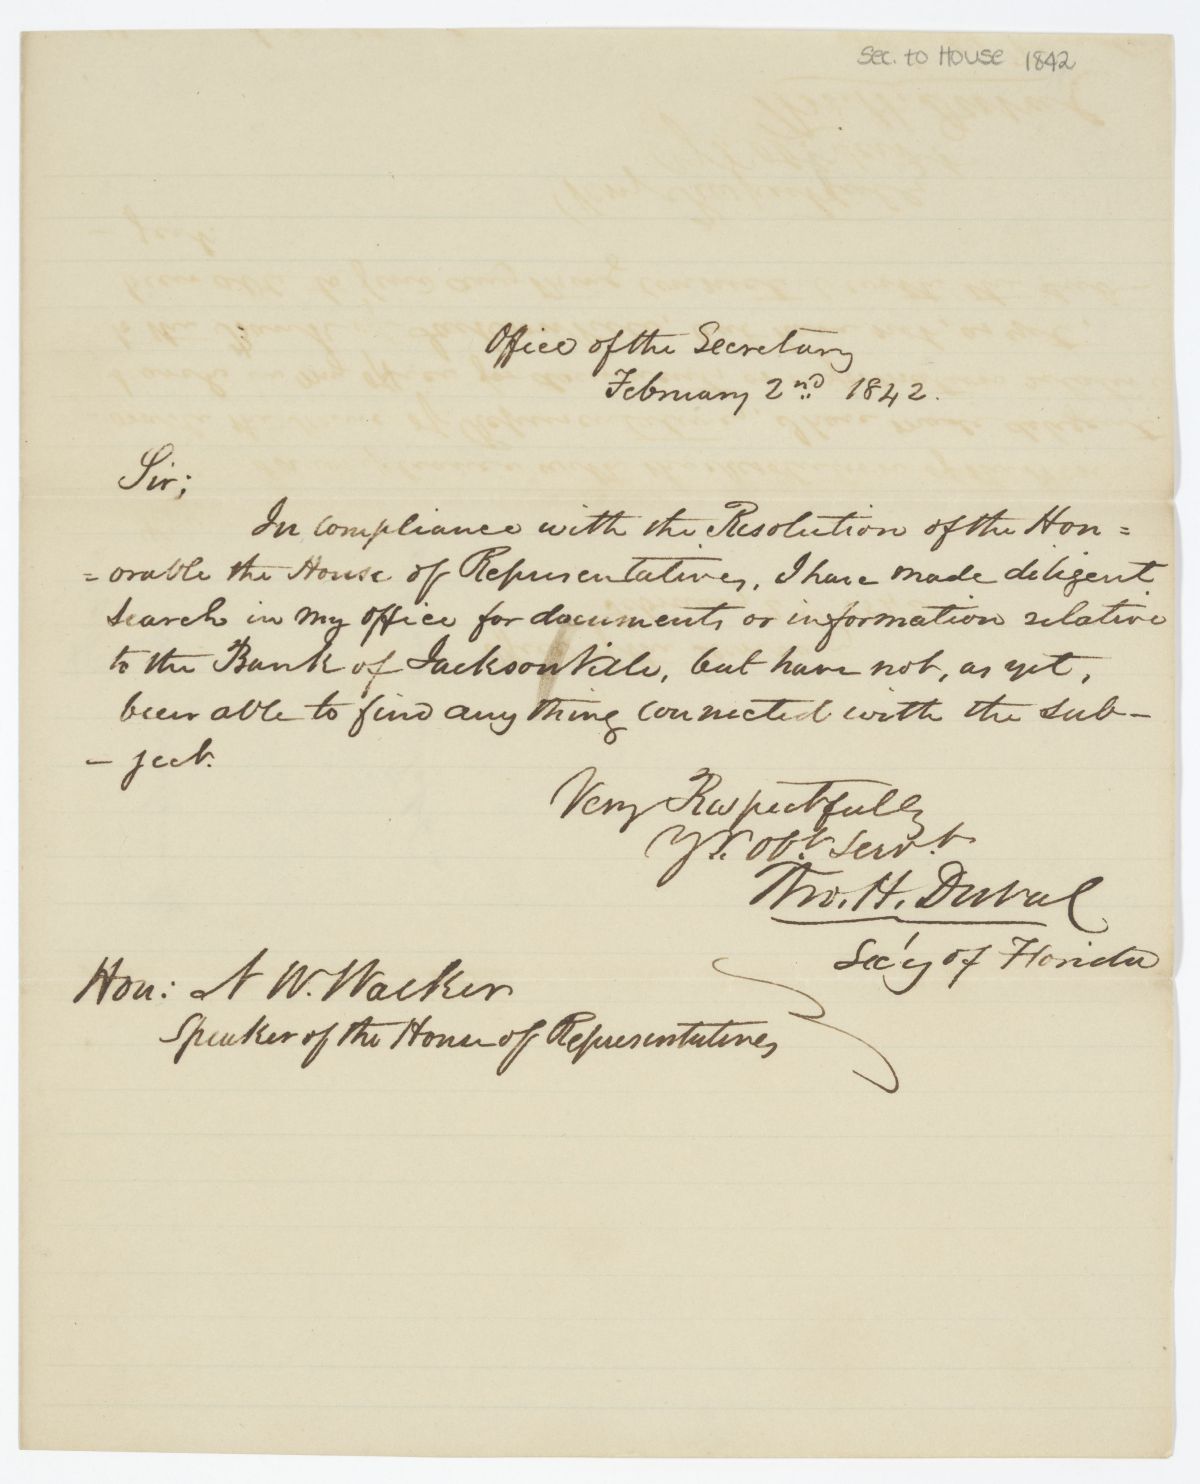 Sec. to House 1842
Office of the Secretary
February 2nd 1842.
Sir;
In compliance with the Resolution of the Hon=
=orable the House of Representatives, I have made diligent
search in my office for documents or information relative
to the Bank of Jacksonville, but have not, as yet,
been able to find any thing connected with the sub-
- ject.
Very Respectfully
Yr. Obt. Servt.
Tho. H. Duval
Sec'y of Florida
Hon: N W. Walker
Speaker of the House of Representatives